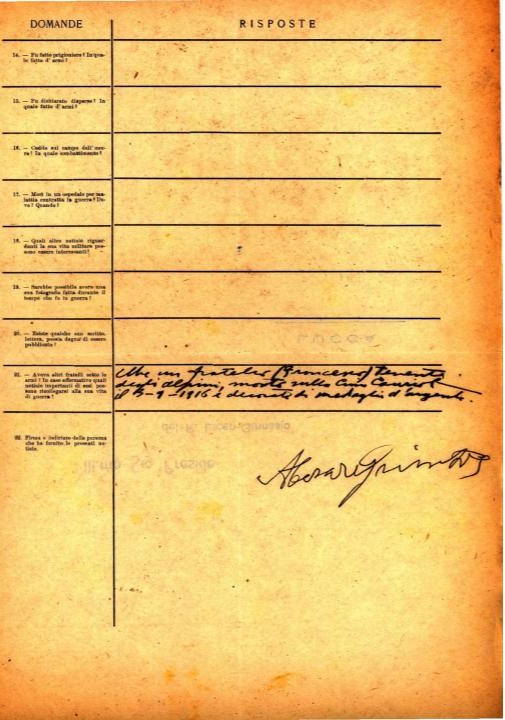 DOMANDE
RISPOSTE
14. — Fu fatto prigioniero? In qua-
le fatto d'armi?
15. — Fu dichiarato disperso? In
quale fatto d'armi?
16. — Cadde sul campo dell'ono-
re? In quale combattimento?
17. — Morì in un ospedale per ma-
lattia contratta in guerra? Do-
ve? Quando?
18. — Quali altre notizie riguar-
danti la sua vita militare pos-
sono essere interessanti?
19. — Sarebbe possibile avere una
sua fotografia fatta durante il
tempo che fu in guerra?
20. — Esiste qualche suo scritto,
lettera, poesia degna di essere
pubblicata?
21. — Aveva altri fratelli sotto le
armi? In caso affermativo quali
notizie importanti di essi pos-
sono ricollegarsi alla sua vita
di guerra?
Ebbe un fratello (Francesco) tenente
degli alpini, morto sullo
il 1916 e decorato di medaglia d'argento.
22. Firma e indirizzo della persona
che ha fornito le presenti no-
tizie.
LUCCA
del R. Liceo-Ginnasio
Ill.mo Sig. Preside